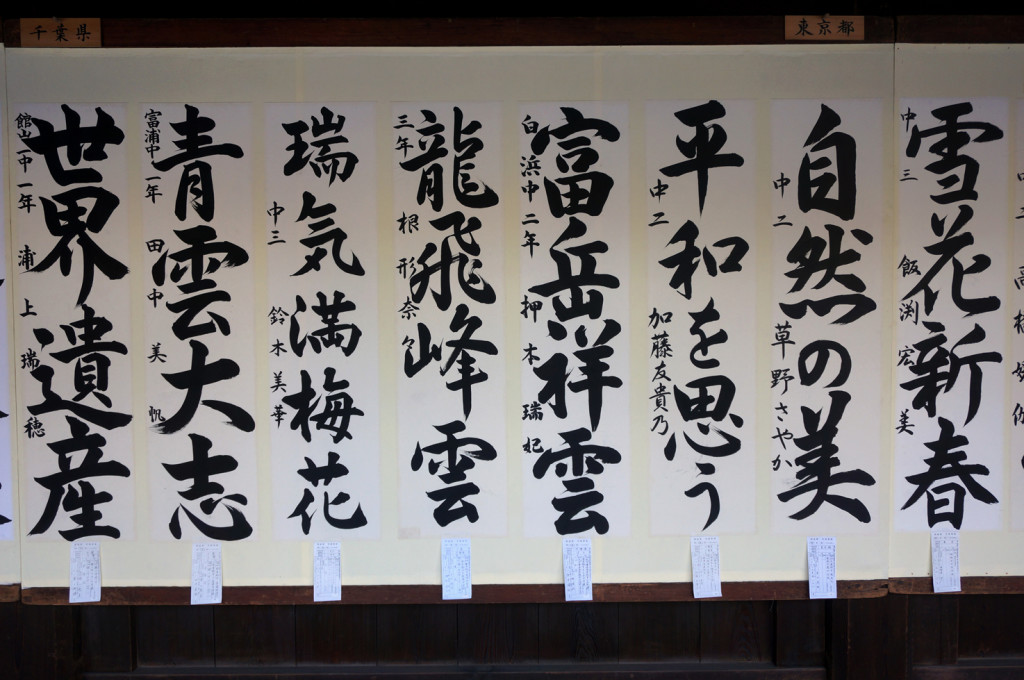 東京都
千葉県
雪花新春
中三 飯渕宏美
自然の美
中二 草野さやか
平和を思う
中二 加藤友貴乃
富岳祥雲
白浜中二年 押本瑞妃
龍飛峰雲
三年 根形奈
瑞気満梅花
中三 鈴木美華
青雲大志
富浦中一年 田中美帆
世界遺産
館山一中一年 浦上瑞穂